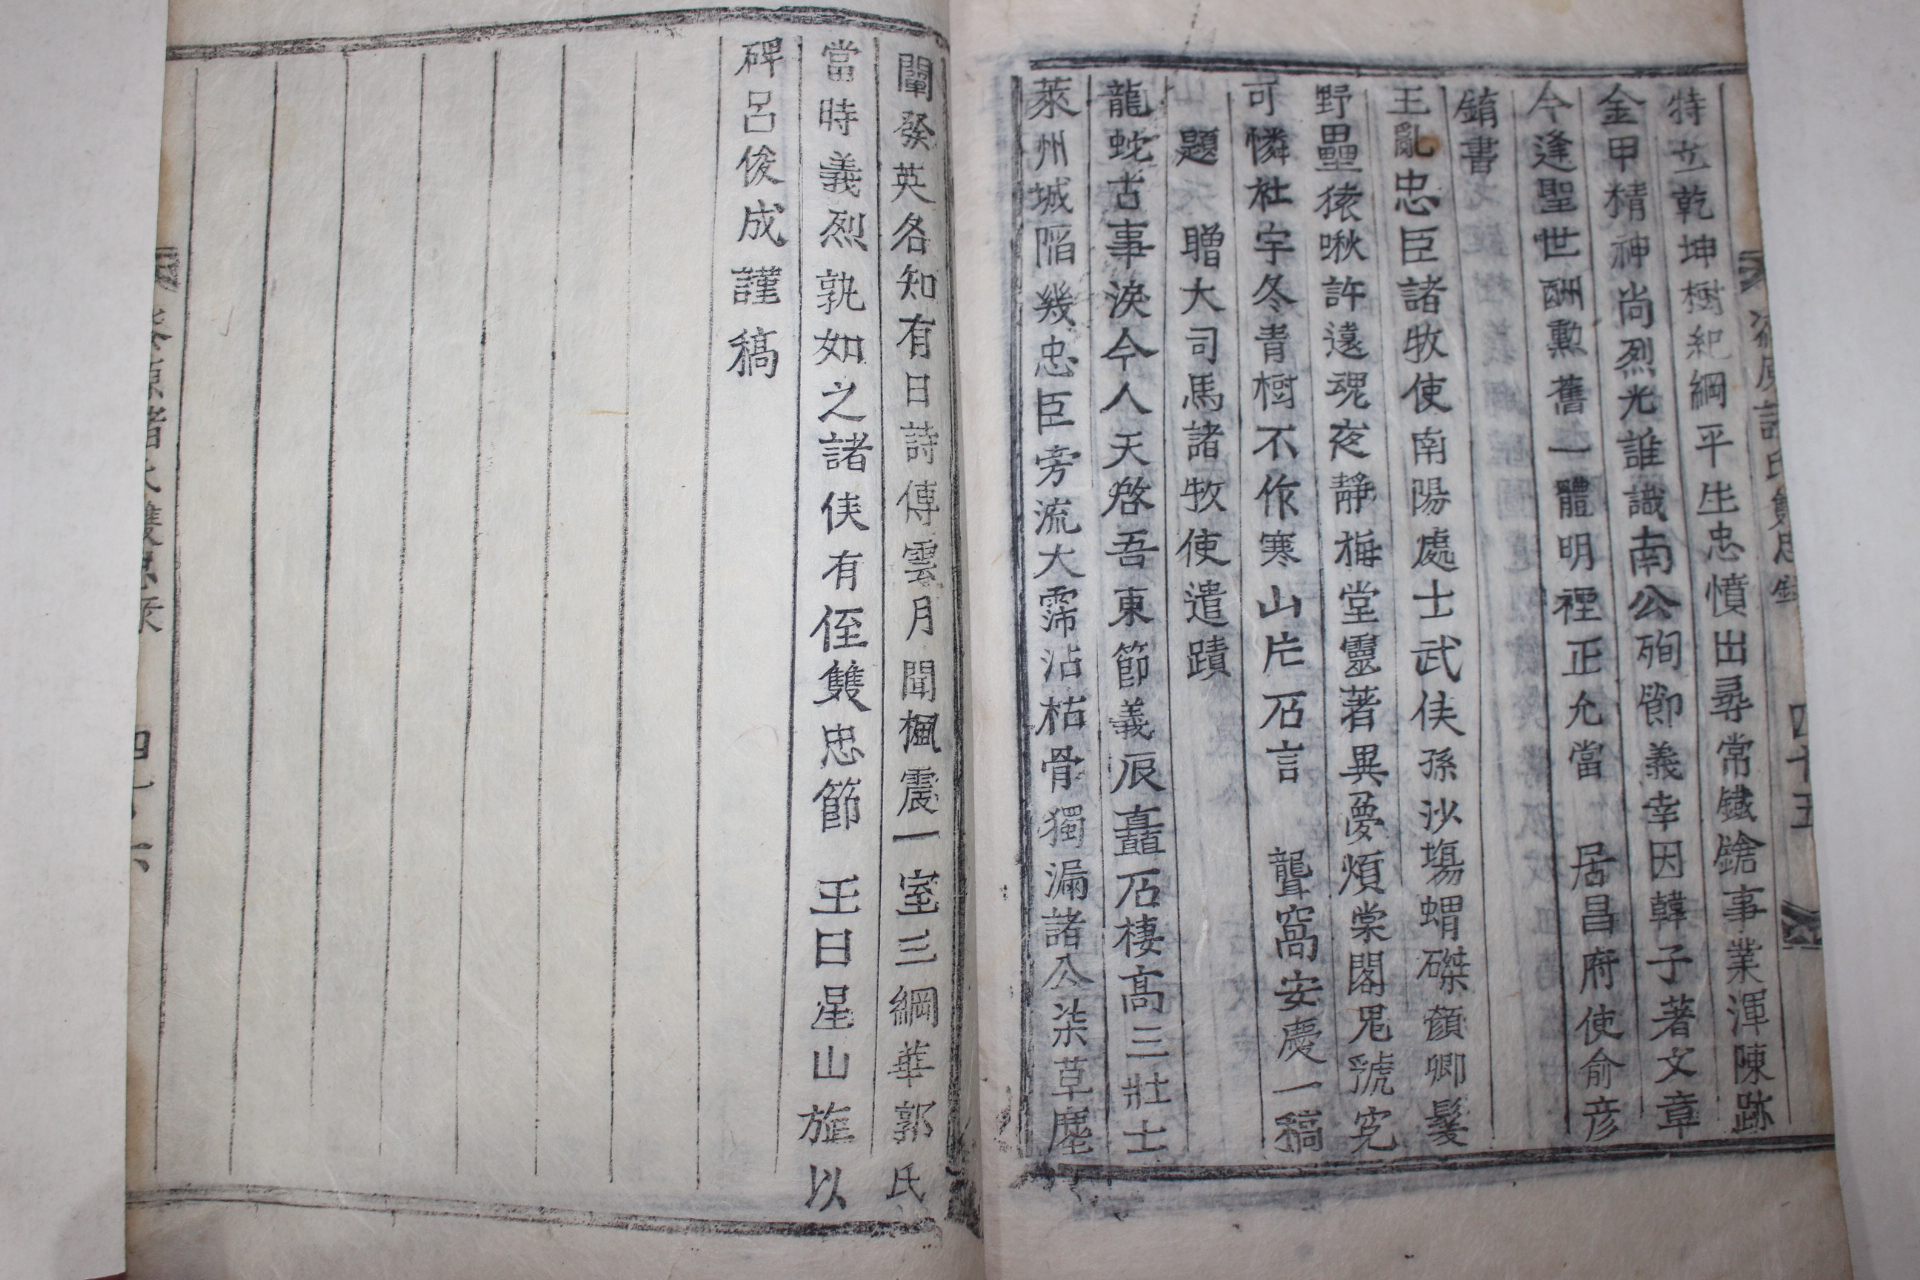 漆原諸氏雙忠錄 四十五
特立乾坤樹紀綱平生忠憤出尋常鐵鎗事業渾陳跡
金甲精神尚烈光誰識南公殉節義幸因韓子著文章
今逢聖世酬勲舊一體明禋正允當 居昌府使俞彦
銷書
王亂忠臣諸牧使南陽處士武侯孫沙塲蝟磔顔卿髮
野壘猿啾許遠魂夜靜梅堂靈著異夢煩棠閣鬼號寃
可憐杜宇冬青樹不作寒山片石言 聾窩安慶一稿
題 贈大司馬諸牧使遺蹟
龍蛇古事淚今人天啓吾東節義辰矗石棲高三壯士
萊州城陷幾忠臣旁流大霈沾枯骨獨漏諸公柒草塵
闡發英名知有日詩傳雲月聞楓震一室三綱華郭氏
當時義烈孰如之諸侯有侄雙忠節 王曰星山旌以
碑呂俊成謹稿
漆原諸氏雙忠录 四十六